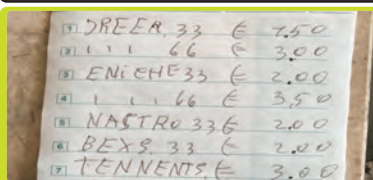 1 DREER 33 € 1.50
2 ı ı ı 66 € 3.00
3 ENiCHE 33 € 2.00
4 ı ı 66 € 3.50
5 NASTRO 33 € 2.00
6 BEXS 33 € 2.00
7 TENNENTS € 3.00